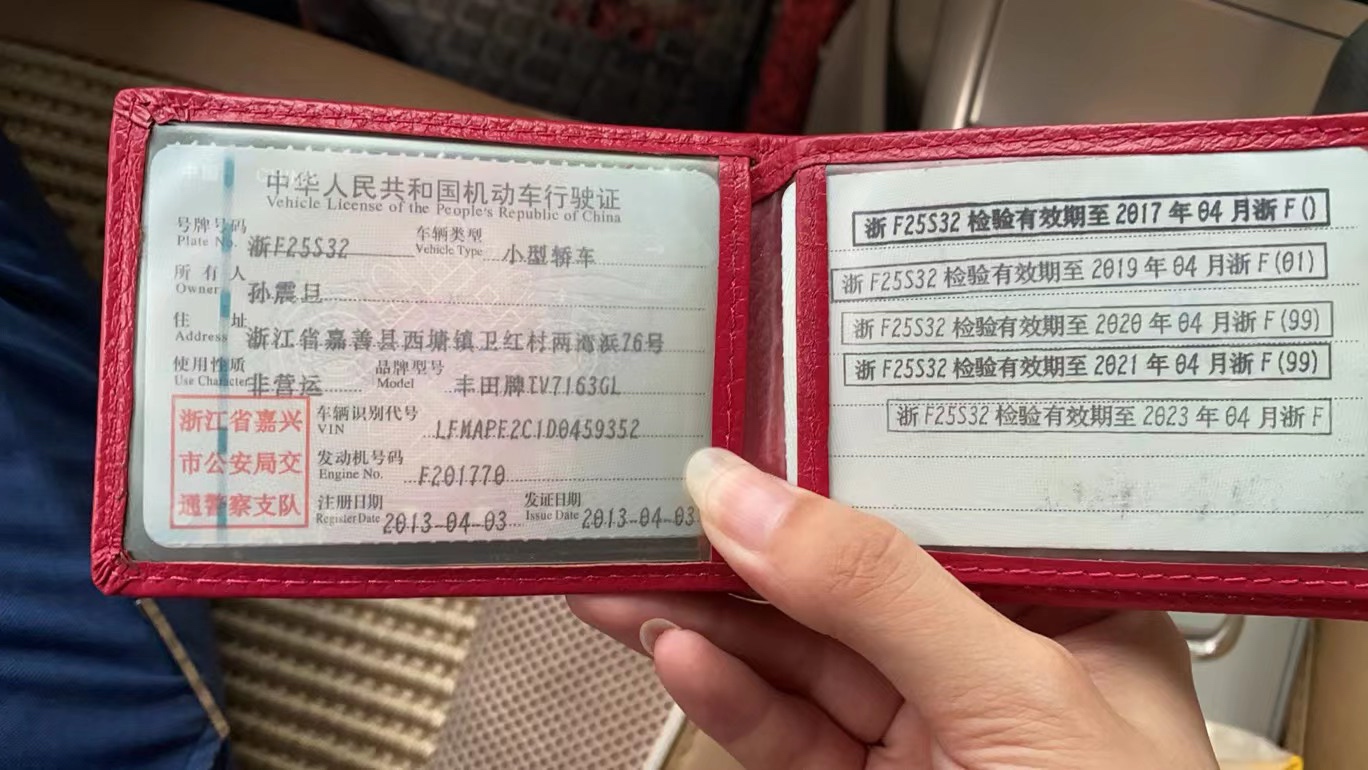 中华人民共和国机动车行驶证
Vehicle License of the People's Republic of China
号牌号码 浙F25S32 车辆类型 小型轿车
Plate No. Vehicle Type
所有人 孙震旦
Owner
住址 浙江省嘉善县西塘镇卫红村两湾浜76号
Address
使用性质 非营运 品牌型号 丰田牌TV7163GL
Use Character Model
浙江省嘉兴
市公安局交
通警察支队
车辆识别代号 LFMAPE2C1D0459352
VIN
发动机号码 F201770
Engine No.
注册日期 2013-04-03 发证日期 2013-04-03
Register Date Issue Date
浙F25S32 检验有效期至2017年04月浙F()
浙F25S32 检验有效期至2019年04月浙F(01)
浙F25S32 检验有效期至2020年04月浙F(99)
浙F25S32 检验有效期至2021年04月浙F(99)
浙F25S32 检验有效期至2023年04月浙F